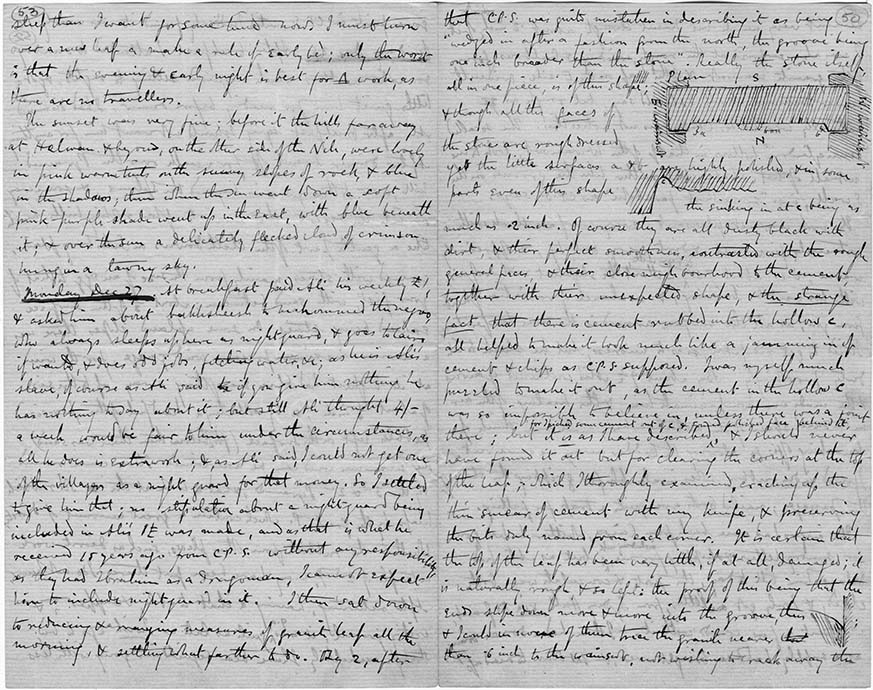 53
sleep than I want for some time now I must turn
over a new leaf & make a rule of early bed; only the worst
is that the evening & early night is best for Δ work, as
there are no travellers.
The sunset was very fine; before it the hills far away
at Helwan & beyond, on the other side of the Nile, were lovely
in pink warm tints on the sunny slopes of rock, & blue
in the shadows; then when the sun went down a soft
pink-purple shade went up in the East, with blue beneath
it; & over the sun a delicately flecked cloud of crimson
hung in a tawny sky.
Monday Dec 27. At breakfast paid Ali his weekly £1,
& asked him about bakhsheesh to the negro,
who always sleeps up here as night guard, & goes to Cairo
if wanted, & does odd jobs, fetching water, &c; as he is Ali's
slave, of course as Ali said if you give him nothing he
has nothing to say about it; but still Ali thought 4/-
a week would be fair to him under the circumstances, as
all he does is extra work; & as Ali said I could not get one
of the villagers as a night guard for that money. So I settled
to give him that; no stipulation about a night guard being
included in Ali's £1 was made, and as that is what he
received 15 years ago from C.P.S. without any responsibility
as they had Ibrahim as a dragoman, I cannot expect
him to include night guard in it. I then sat down
to reducing & arranging measures of granite leaf all the
morning, & settling what farther to do. By 2, after
50
that C.P.S. was quite mistaken in describing it as being
"wedged in after a fashion from the north, the groove being
one inch broader than the stone". Really the stone itself,
all in one piece, is of this shape;
Plan
S
N
& though all the faces of
the stone are rough dressed
yet the little surfaces a & b highly polished, & in some
parts even of this shape
the sinking in at c being as
much as ·2 inch. Of course they are all dusty black with
dirt, & their perfect smoothness, contrasted with the rough
general faces & their close neighbourhood to the cement,
together with their unexpected shape, & the strange
fact that there is cement rubbed into the hollow c,
all helped to make it look much like a jamming in of
cement & chips as C.P.S. supposed. I was myself much
puzzled to make it out, as the cement in the hollow c
was so impossible to believe in, unless there was a joint
for I picked some cement out of c, & found polished face behind it;
there; but it is as I have described, & I should never
have found it out but for clearing the corners at the top
of the leaf; which I thoroughly examined, cracking up the
thin smear of cement with my knife & preserving
the bits duly named from each corner. It is certain that
the top of the leaf has been very little, if at all, damaged; it
is naturally rough & so left: the proof of this being that the
ends slope down more & more into the groove, thus
& I could in none of them trace the granite nearer
than ·6 inch to the wainscot, not wishing to crack away the